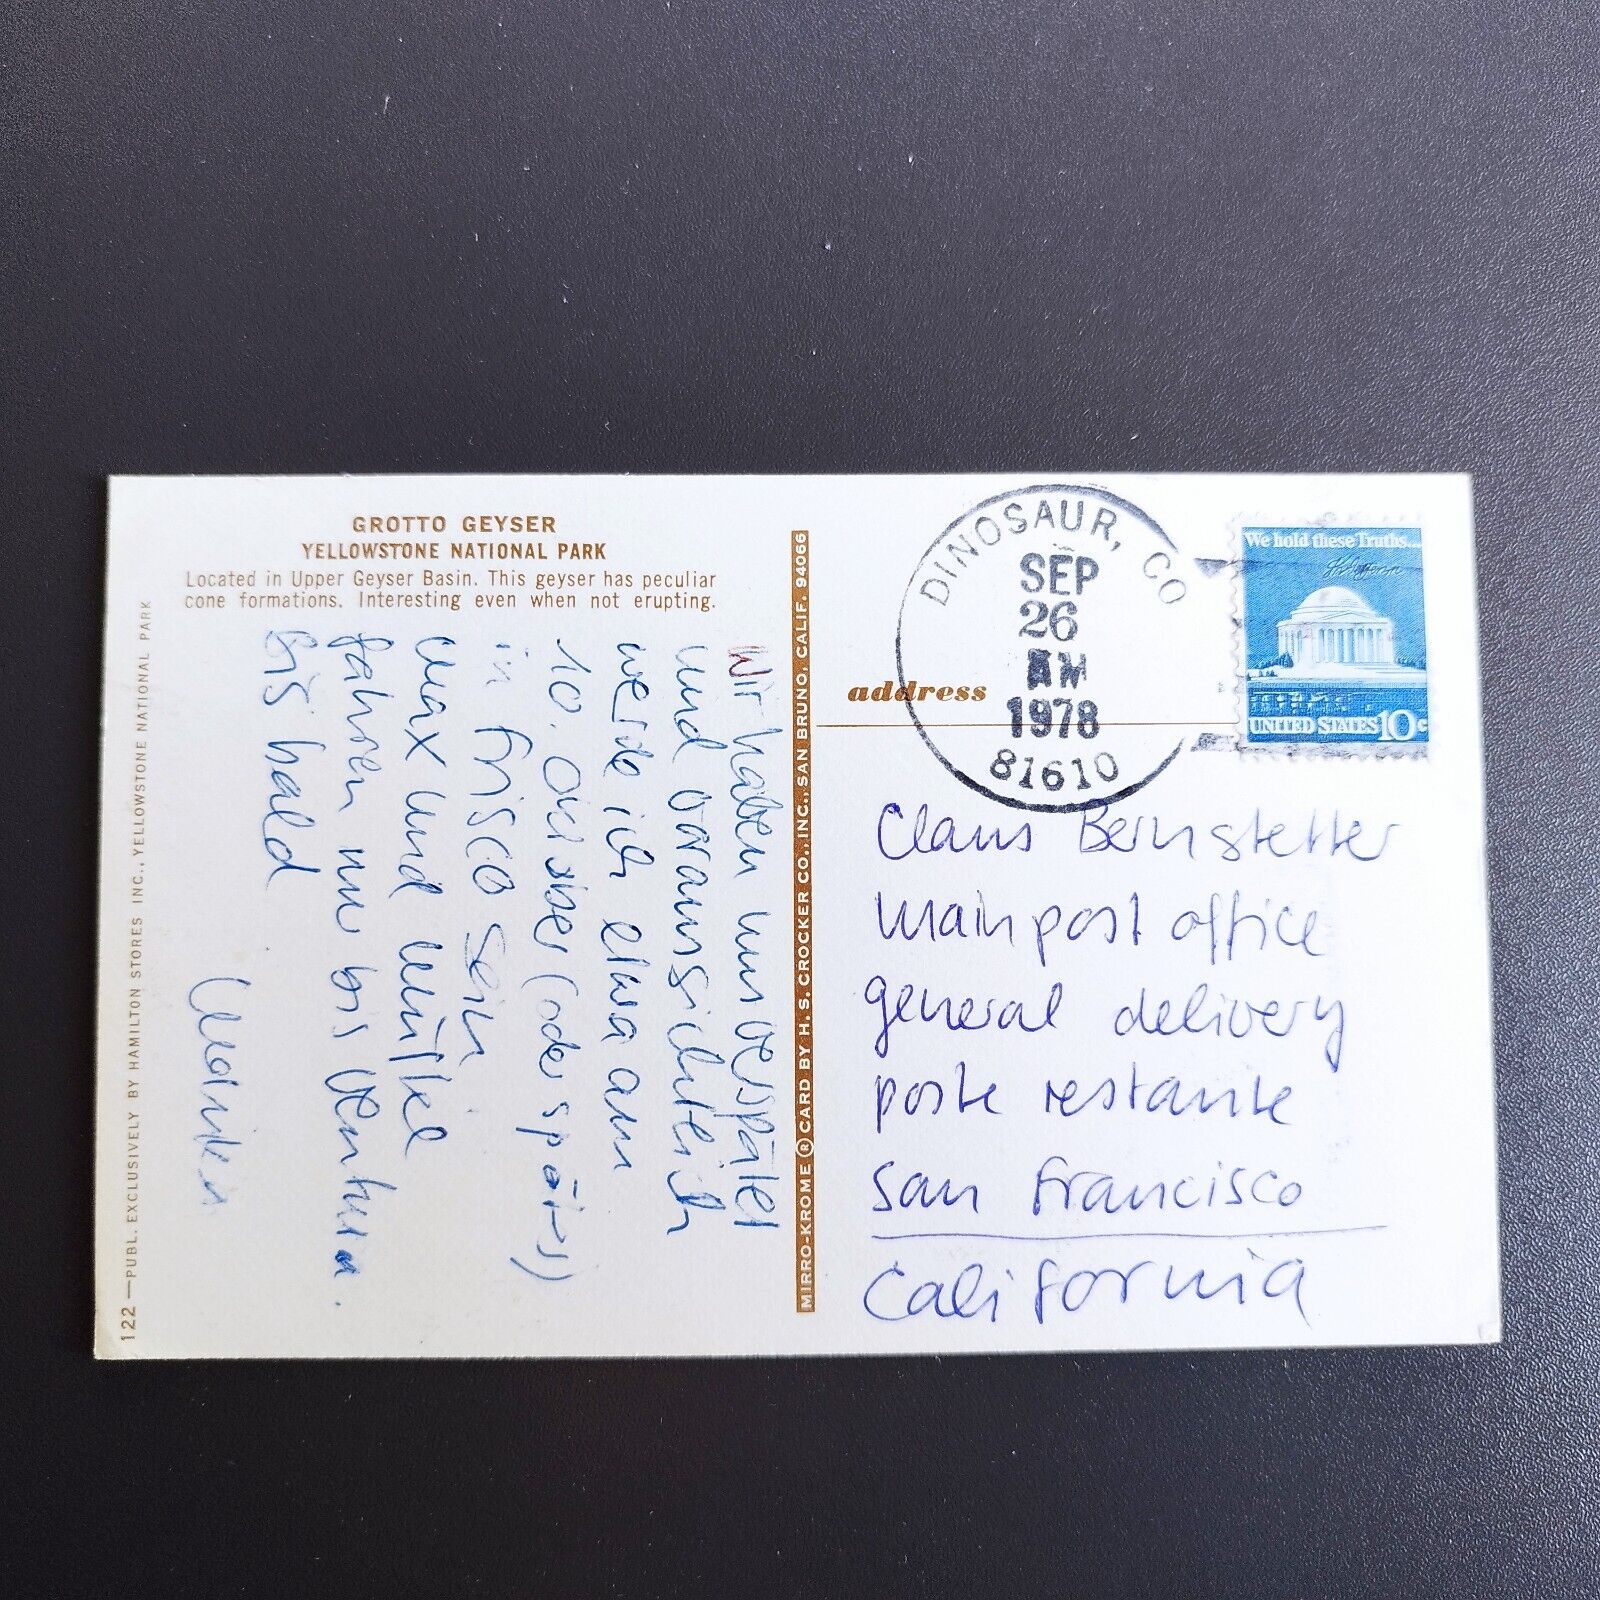 GROTTO GEYSER
YELLOWSTONE NATIONAL PARK
Located in Upper Geyser Basin. This geyser has peculiar
cone formations. Interesting even when not erupting.
Wir haben uns verspätet
und voraussichtlich
werde ich etwa am
10. Oktober (oder später)
in Frisco sein
Max und
fahren nur bis Ventura.
Bis bald
122—PUBL. EXCLUSIVELY BY HAMILTON STORES INC., YELLOWSTONE NATIONAL PARK
MIRRO-KROME ® CARD BY H. S. CROCKER CO., INC., SAN BRUNO, CALIF. 94066
address
DINOSAUR, CO
SEP
26
AM
1978
81610
We hold these Truths...
UNITED STATES 10c
Claus Bernstetter
main post office
general delivery
poste restante
San Francisco
California